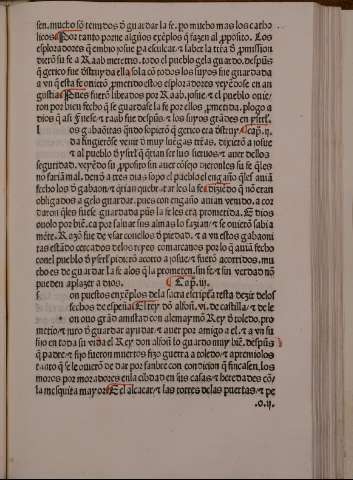 sen. mucho sõ tenudos d' guardar la fe. po mucho mas los catho
licos. Por tanto porne algũos exẽplos q̃ fazen al pposito. Los
esploradores que embio josue pa escultar. ⁊ saber la tr̃ra d' pmission
dierõ su fe a Raab meretris. todo el pueblo gela guardo. despũs
que gerico fue destruyda ella sola cõ todos los suyos fue guardada
a vn q̃ esta fe oñierõ pmetendo los esploradores veyẽdose en an
gustias. Pues fuerõ librados por Raab. josue ⁊ el pueblo ouie
ron por bien fecho que se guardase la fe por ellos pmetida. plogo a
dios q̃ asi fuese ⁊ raab fue despũs ⁊ los suyos grãdes en ysrl.
l os gabaõitas qñdo sopierõ q̃ gerico era destruy. Cap. ij.
da fingieronse venir d' muy luẽgas tr̃ras. dixierõ a josue
⁊ al pueblo d' ysrl q̃ q̃rian ser sus sieruos ⁊ auer dellos
seguridad. veyẽdo su pposito sin auer cõsejo dieronles su fe q̃ les
no fariã mal. dend' a tres dias sopo el pueblo el engaño q̃ les auiã
fecho los d' gabaon ⁊ q̃rian quebrãtar les la fe diziẽdo q̃ nõ eran
obligados a gela guardar. pues con engaño auian venido. acor
daron q̃ les fuese guardada pũs la fe les era prometida. E dios
ouolo por biẽ. ca por saluar sus almas lo fazian ⁊ se ouierõ sabia
mẽte. Razõ fue de vsar conellos d' piedad. ⁊ a vn estos gabaoni
tas estãdo cercados delos reyes comarcanos por lo q̃ auiã fecho
conel pueblo d' ysrl pidierõ acorro a josue ⁊ fuerõ acorridos. mu
cho es de guardar la fe alos q̃ la prometen. sin fe ⁊ sin verdad nõ
pueden aplazer a dios. Cap. iij.
s on puestos exẽplos dela sacra escriptura resta dezir delos
fechos de españa. El rey dõ alfoñ. vi. de castilla ⁊ de le
on ouo grãd amistad con alemaymõ Rey d' toledo. pro
metio ⁊ juro d' guardar ayudar ⁊ auer por amigo a el. ⁊ a vn su
fijo en toda su vida el Rey don alfoñ lo guardo muy biẽ. despũs
q̃ padre ⁊ fijo fueron muertos fizo guerra a toledo ⁊ apremiolos
tanto q̃ se le ouierõ de dar por fanbre con condicion q̃ fincasen. los
moros por moradores enla cibdad en sus casas ⁊ heredades cõ
la mesquita mayor. E el alcacar ⁊ las torres delas puertas ⁊ pe
o. ij.